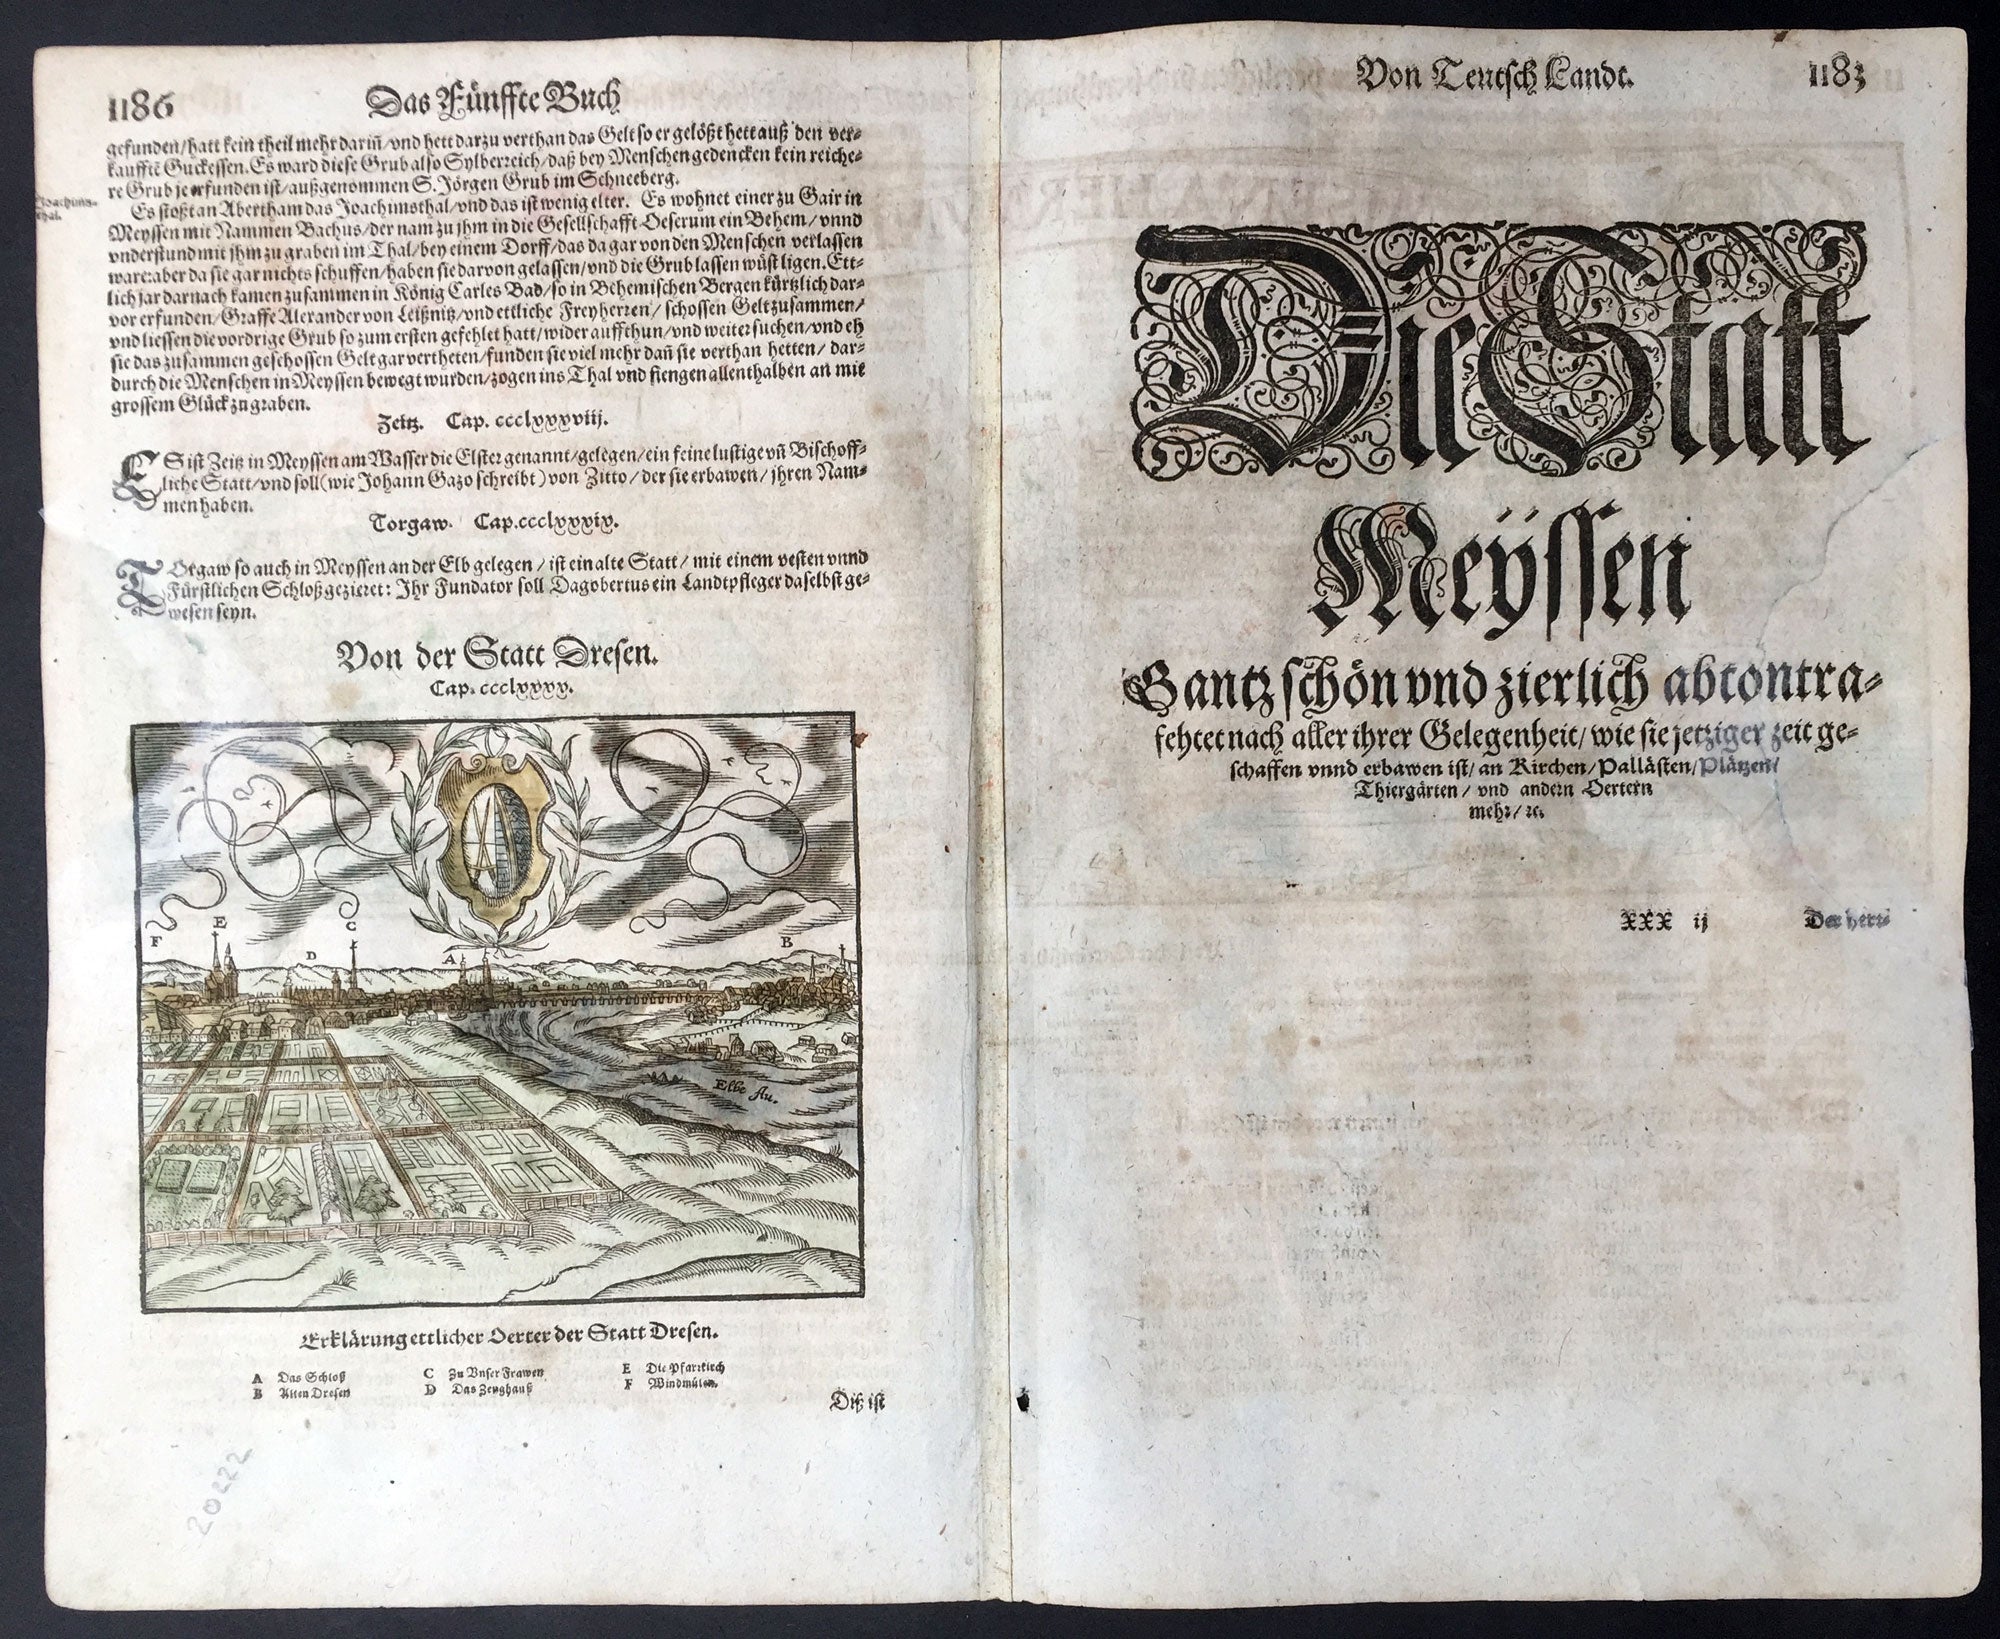 1186
Das Fünffte Buch
gefunden/hatt kein theil mehr dariñ/vnd hett darzu verthan das Gelt so er gelößt hett auß den ver-
kaufftẽ Guckessen. Es ward diese Grub also Sylberreich/daß bey Menschen gedencken kein reiche-
re Grub je erfunden ist/außgenommen S. Jörgen Grub im Schneeberg.
Joachims-
thal.
Es stoßt an Abertham das Joachimsthal/vnd das ist wenig elter. Es wohnet einer zu Gair in
Meyssen mit Nammen Bachus/der nam zu jhm in die Gesellschafft Oeserum ein Behem/vnnd
vnderstund mit jhm zu graben im Thal/bey einem Dorff/das da gar von den Menschen verlassen
ware: aber da sie gar nichts schuffen/haben sie darvon gelassen/vnd die Grub lassen wüst ligen. Ett-
lich jar darnach kamen zusammen in König Carles Bad/so in Behemischen Bergen kürtzlich dar-
vor erfunden/Graffe Alexander von Leißnitz/vnd ettliche Freyherren/schossen Gelt zusammen/
vnd liessen die vordrige Grub so zum ersten gefehlet hatt/wider auffthun/vnd weiter suchen/vnd eh
sie das zusammen geschossen Gelt gar vertheten/funden sie viel mehr dañ sie verthan hetten/dar-
durch die Menschen in Meyssen bewegt wurden/zogen ins Thal vnd fiengen allenthalben an mit
grossem Glück zu graben.
Zeitz. Cap. ccclxxxviij.
ES ist Zeitz in Meyssen am Wasser die Elster genannt/gelegen/ein feine lustige vñ Bischoff-
liche Statt/vnd soll (wie Johann Gazo schreibt) von Zitto/der sie erbawen/jhren Nam-
men haben.
Torgaw. Cap. ccclxxxix.
TOrgaw so auch in Meyssen an der Elb gelegen/ist ein alte Statt/mit einem vesten vnnd
Fürstlichen Schloß gezieret: Ihr Fundator soll Dagobertus ein Landtpfleger daselbst ge-
wesen seyn.
Von der Statt Dresen.
Cap. ccclxxxx.
F E D C A B
Elbe flu.
Erklärung ettlicher Oerter der Statt Dresen.
A Das Schloß C Zu Vnser Frawen E Die Pfarrkirch
B Alten Dresen D Das Zeughauß F Windmülen.
Diß ist
20222
Von Teutsch Landt.
1183
Die Statt
Meÿssen
Gantz schön vnd zierlich abcontra-
fehtet nach aller ihrer Gelegenheit/wie sie jetziger zeit ge-
schaffen vnnd erbawen ist/an Kirchen/Pallästen/Plätzen/
Thiergärten/vnd andern Oertern
mehr/ꝛc.
XXX ij
Der herr-